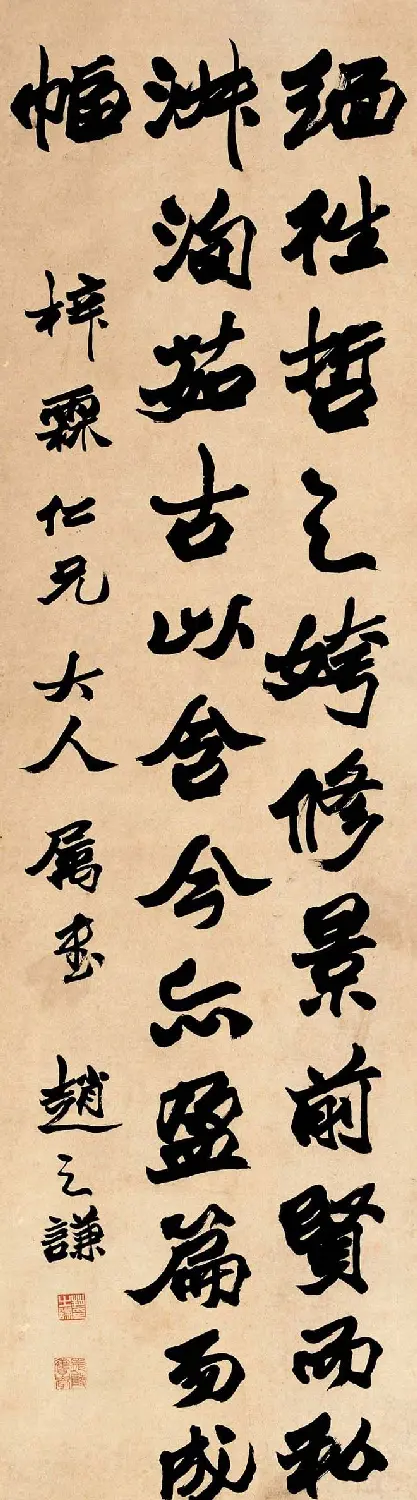 緬往哲之姱修景前賢而私
淑洵茹古以含今亦盈篇而成
幅
梓霖仁兄大人屬書 趙之謙